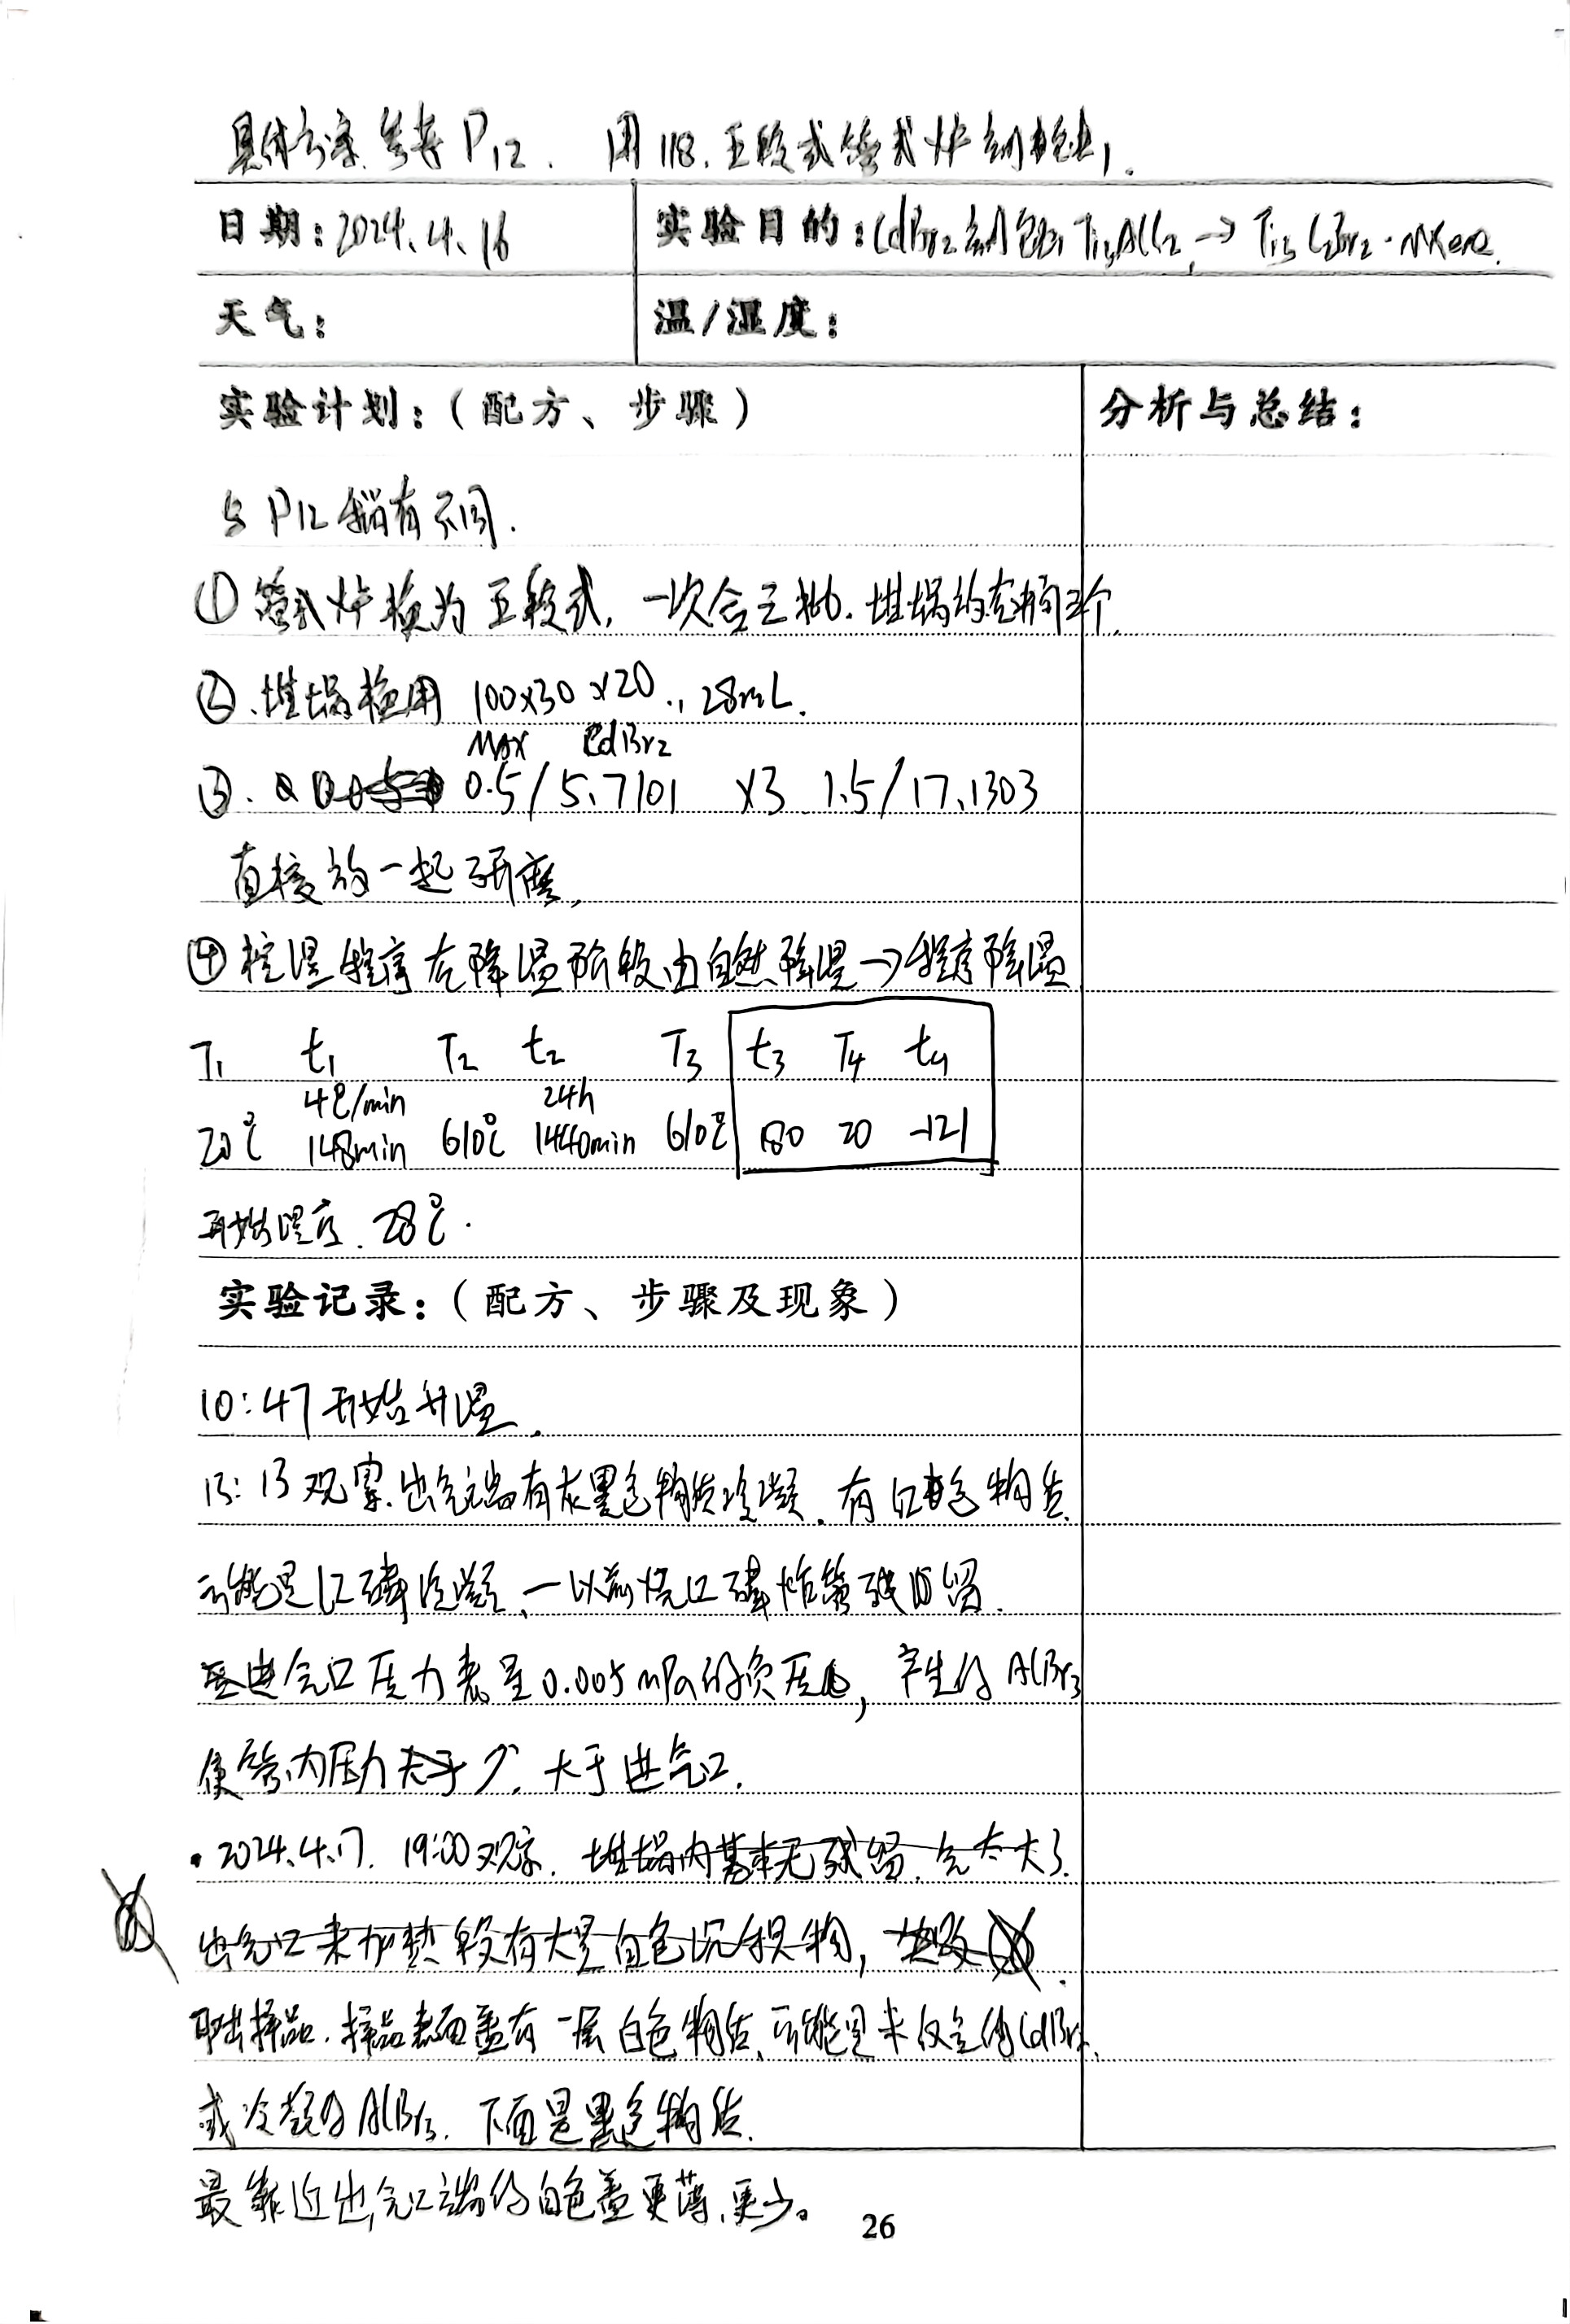 具体方案参考P12. 用118.五段式管式炉刻蚀.
日期:2024.4.16 实验目的:CdBr2刻蚀Ti3AlC2 → Ti3C2Br2-MXene.
天气: 温/湿度:
实验计划:(配方、步骤) 分析与总结:
与P12稍有不同.
①管式炉换为五段式,一次合三批.坩埚均为三个
②.坩埚换用 100x30x20., 28mL.
MAX CdBr2
③. 0.5/5.7101 x3 1.5/17.1303
直接放一起研磨.
④控温程序在降温阶段由自然降温→程序降温
T1 t1 T2 t2 T3 t3 T4 t4
4℃/min 24h
20℃ 148min 610℃ 1440min 610℃ 180 20 -121
开始温度. 28℃.
实验记录:(配方、步骤及现象)
10:47开始升温.
13:13观察.出气端有灰黑色物质冷凝.有红色物质.
可能是红磷冷凝,—以前烧红磷炸管残留.
进气口压力表呈0.005mPa的负压,产生的AlBr3
使管内压力大于进气口.
·2024.4.17. 19:00观察. 坩埚内基本无残留.气太大了.
出气口未加热段有大量白色沉积物,
取出样品.样品表面盖有一层白色物质,可能是未反应的CdBr2.
或冷凝的AlBr3. 下面是黑色物质.
最靠近出气口端的白色盖更薄,更少。
26